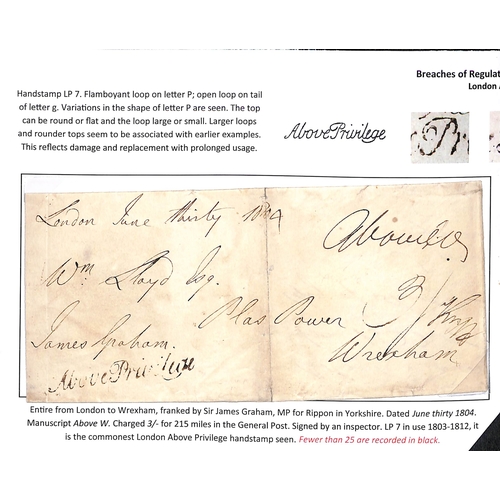 Breaches of Regulat
London A
Handstamp LP 7. Flamboyant loop on letter P; open loop on tail
of letter g. Variations in the shape of letter P are seen. The top
can be round or flat and the loop large or small. Larger loops
and rounder tops seem to be associated with earlier examples.
This reflects damage and replacement with prolonged usage.
Above Privilege
Pr
London June thirty 1804
Above
Wm Lloyd Esq.
3/
Plas Power
James Graham.
Wrexham
Above Privilege
Entire from London to Wrexham, franked by Sir James Graham, MP for Rippon in Yorkshire. Dated June thirty 1804.
Manuscript Above W. Charged 3/- for 215 miles in the General Post. Signed by an inspector. LP 7 in use 1803-1812, it
is the commonest London Above Privilege handstamp seen. Fewer than 25 are recorded in black.